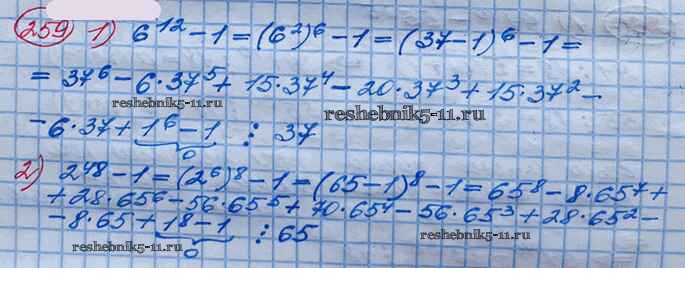 259 1) 6^12 - 1 = (6^2)^6 - 1 = (37-1)^6 - 1 =
= 37^6 - 6·37^5 + 15·37^4 - 20·37^3 + 15·37^2 -
reshebnik5-11.ru
reshebnik5-11.ru
- 6·37 + 1^6 - 1 ⋮ 37
0
2) 2^48 - 1 = (2^6)^8 - 1 = (65-1)^8 - 1 = 65^8 - 8·65^7 +
+ 28·65^6 - 56·65^5 + 70·65^4 - 56·65^3 + 28·65^2 -
- 8·65 + 1^8 - 1 ⋮ 65
reshebnik5-11.ru
reshebnik5-11.ru
0